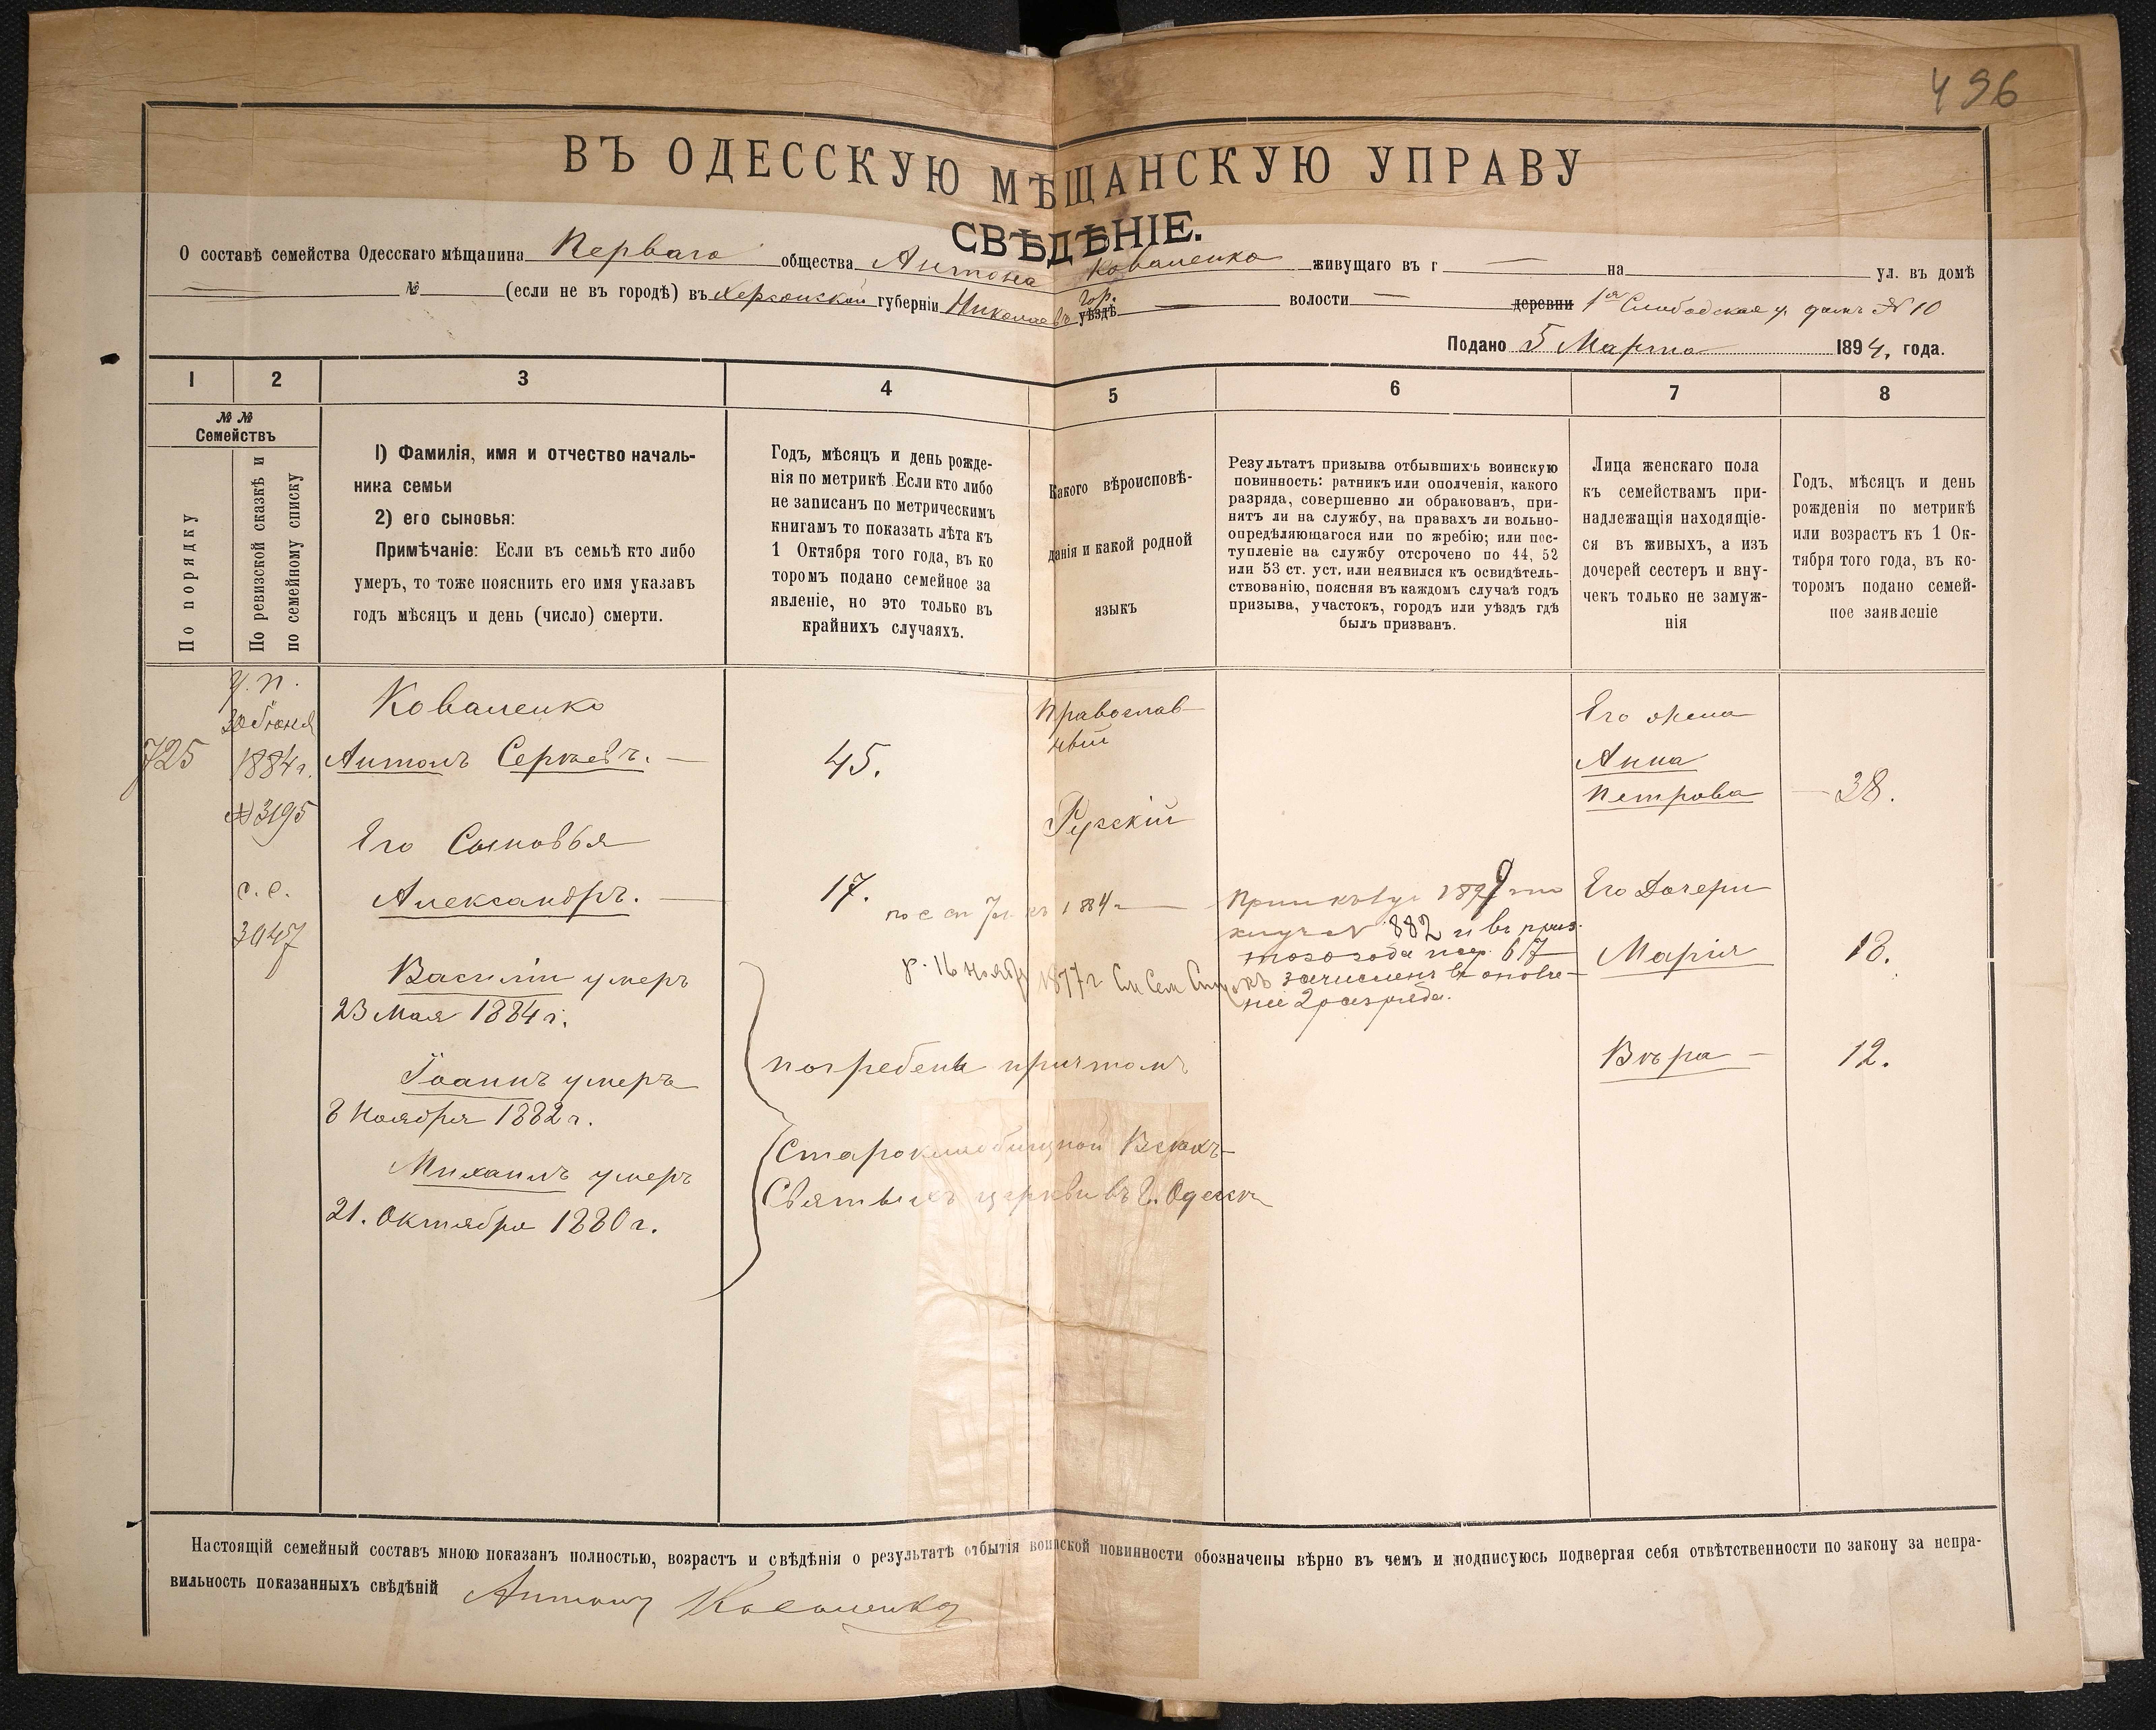 496
ВЪ ОДЕССКУЮ МѢЩАНСКУЮ УПРАВУ
СВѢДѢНІЕ.
О составѣ семейства Одесскаго мѣщанина Перваго общества Антона Коваленко живущаго въ г — на ул. въ домѣ
№ (если не въ городѣ) въ Херсонской губерніи Николаевъ гор. уѣздѣ — волости — деревни 1ая Слободская у. домъ № 10
Подано 5 Марта 1894. года.
1 2 3 4 5 6 7 8
№ №
Семействъ
По порядку
По ревизской сказкѣ и
по семейному списку
1) Фамилія, имя и отчество началь-
ника семьи
2) его сыновья:
Примѣчаніе: Если въ семьѣ кто либо
умеръ, то тоже пояснить его имя указавъ
годъ мѣсяцъ и день (число) смерти.
Годъ, мѣсяцъ и день рожде-
нія по метрикѣ Если кто либо
не записанъ по метрическимъ
книгамъ то показать лѣта къ
1 Октября того года, въ ко
торомъ подано семейное за
явленіе, но это только въ
крайнихъ случаяхъ.
Какого вѣроисповѣ-
данія и какой родной
языкъ
Результатъ призыва отбывшихъ воинскую
повинность: ратникъ или ополченія, какого
разряда, совершенно ли обракованъ, при-
нятъ ли на службу, на правахъ ли вольно-
опредѣляющагося или по жребію; или пос-
тупленіе на службу отсрочено по 44, 52
или 53 ст. уст. или неявился къ освидѣтель-
ствованію, поясняя въ каждомъ случаѣ годъ
призыва, участокъ, городъ или уѣздъ гдѣ
былъ призванъ.
Лица женскаго пола
къ семействамъ при-
надлежащія находящіе-
ся въ живыхъ, а изъ
дочерей сестеръ и вну-
чекъ только не замуж-
нія
Годъ, мѣсяцъ и день
рожденія по метрикѣ
или возрастъ къ 1 Ок-
тября того года, въ ко-
торомъ подано семей-
ное заявленіе
725
у. п.
30 Іюня
1884 г.
№ 3195
с. с.
3047
Коваленко
Антонъ Сергѣевъ. —
45.
Православ-
ный
Русскій
Его жена
Анна
Петрова — 38.
Его Сыновья
Александръ. — 17.
по с сп 7 л. къ 1884 г.
р. 16 ноября 1877 г. См Сем Списокъ
882 и въ приз.
того года жер. 617
зачисленъ въ ополче-
ніе 2 разряда.
Его Дочери
Марія 18.
Вѣра — 12.
Василій умеръ
23 Мая 1884 г.
Іоаннъ умеръ
8 Ноября 1882 г.
Михаилъ умеръ
21. Октября 1880 г.
погребены причтомъ
Старокладбищной Всѣхъ-
Святыхъ церкви въ г. Одессѣ
Настоящій семейный составъ мною показанъ полностью, возрастъ и свѣдѣнія о результатѣ отбытія воинской повинности обозначены вѣрно въ чемъ и подписуюсь подвергая себя отвѣтственности по закону за непра-
вильность показанныхъ свѣдѣній Антонъ Коваленко